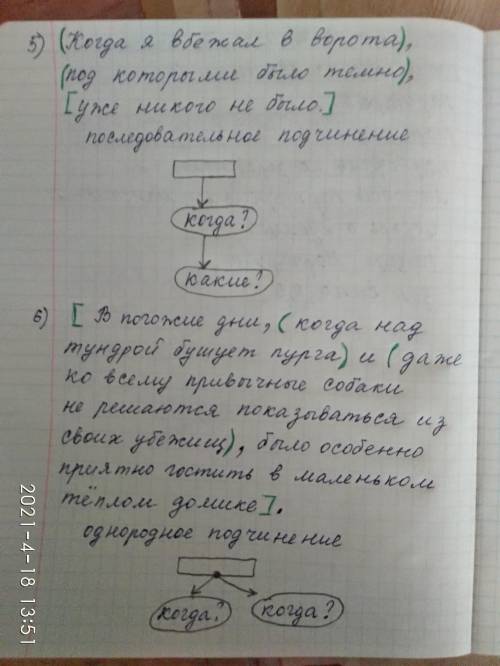 5) (Когда я вбежал в ворота),
(под которыми было темно),
[уже никого не было.]
последовательное подчинение
когда?
какие?
6) [В погожие дни, (когда над
тундрой бушует пурга) и (даже
ко всему привычные собаки
не решаются показываться из
своих убежищ), было особенно
приятно гостить в маленьком
тёплом домике].
однородное подчинение
когда? когда?
2021-4-18 13:51